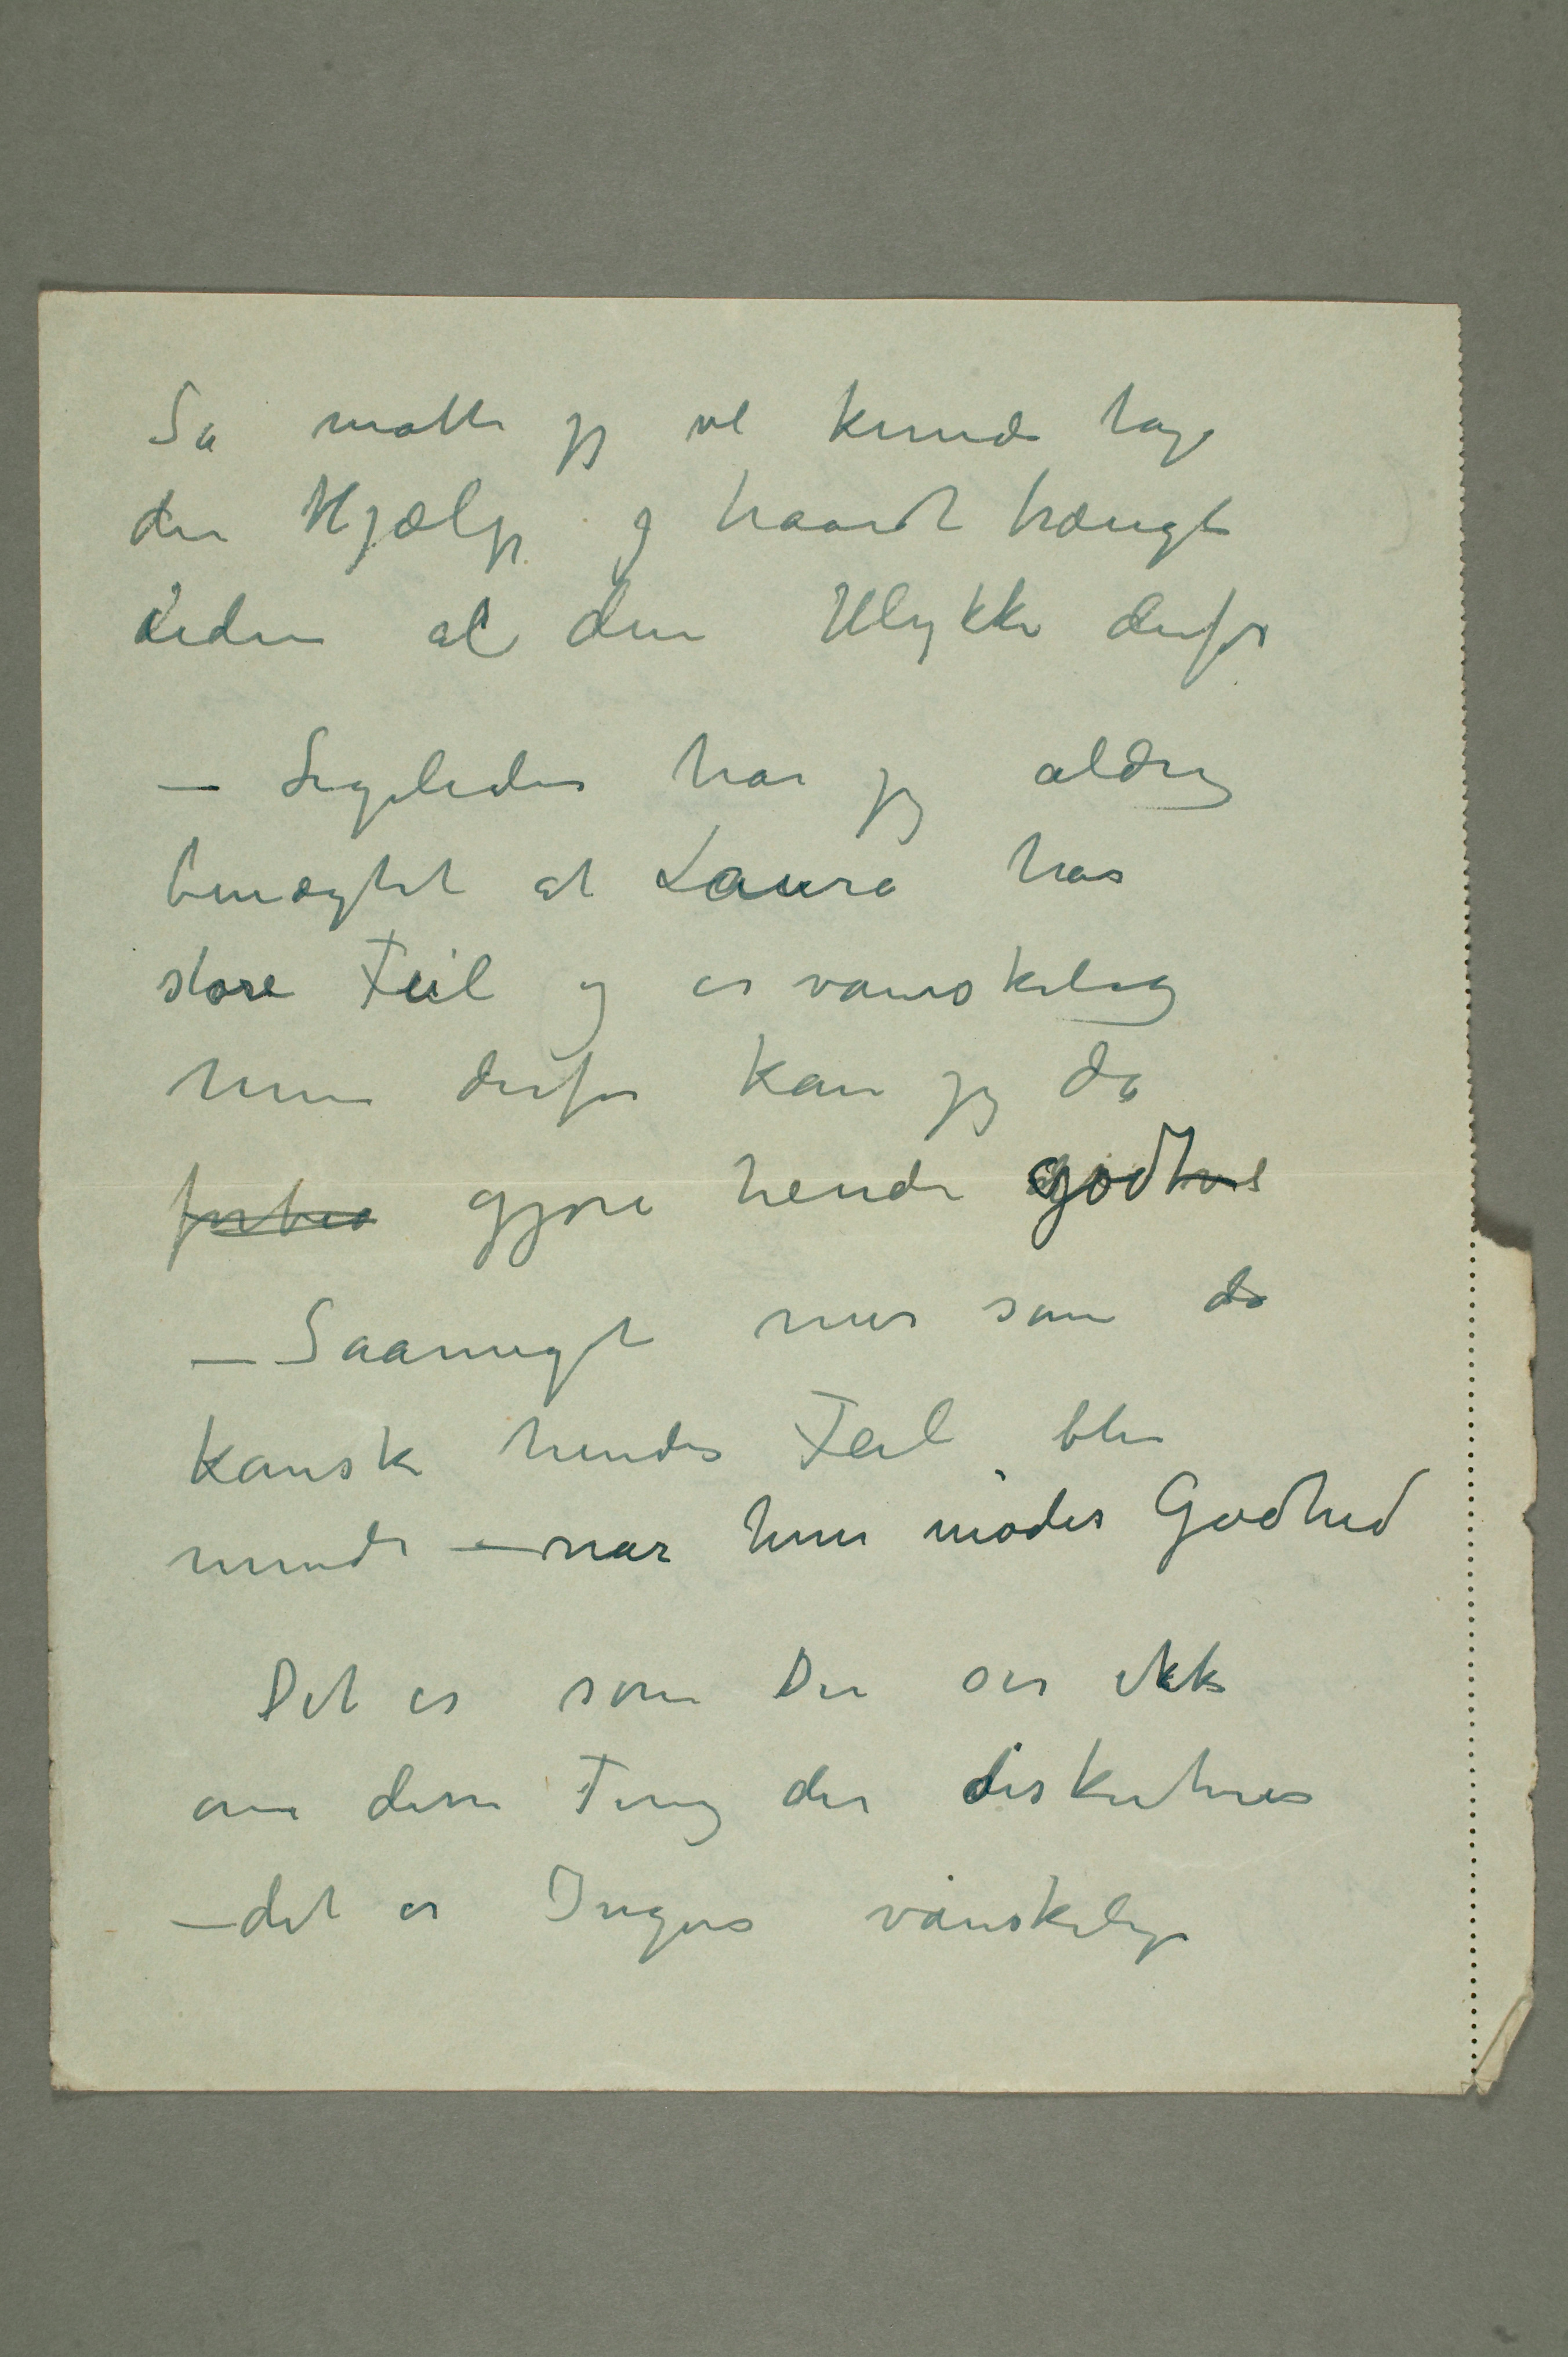 Så måtte jeg vel kunde tage
den Hjælp og haardt trængte
uden al den Ulykke derfor
— Ligeledes har jeg aldrig
benægtet at Laura har
store Feil og er vanskelig
men derfor kan jeg da
gjøre hende godt
— Saameget mer som da
kanske hendes Feil blir
mindre — når hun møder Godhed
Det er som Du ser ikke
om disse Ting der diskuteres
— det er Ingers vanskelige